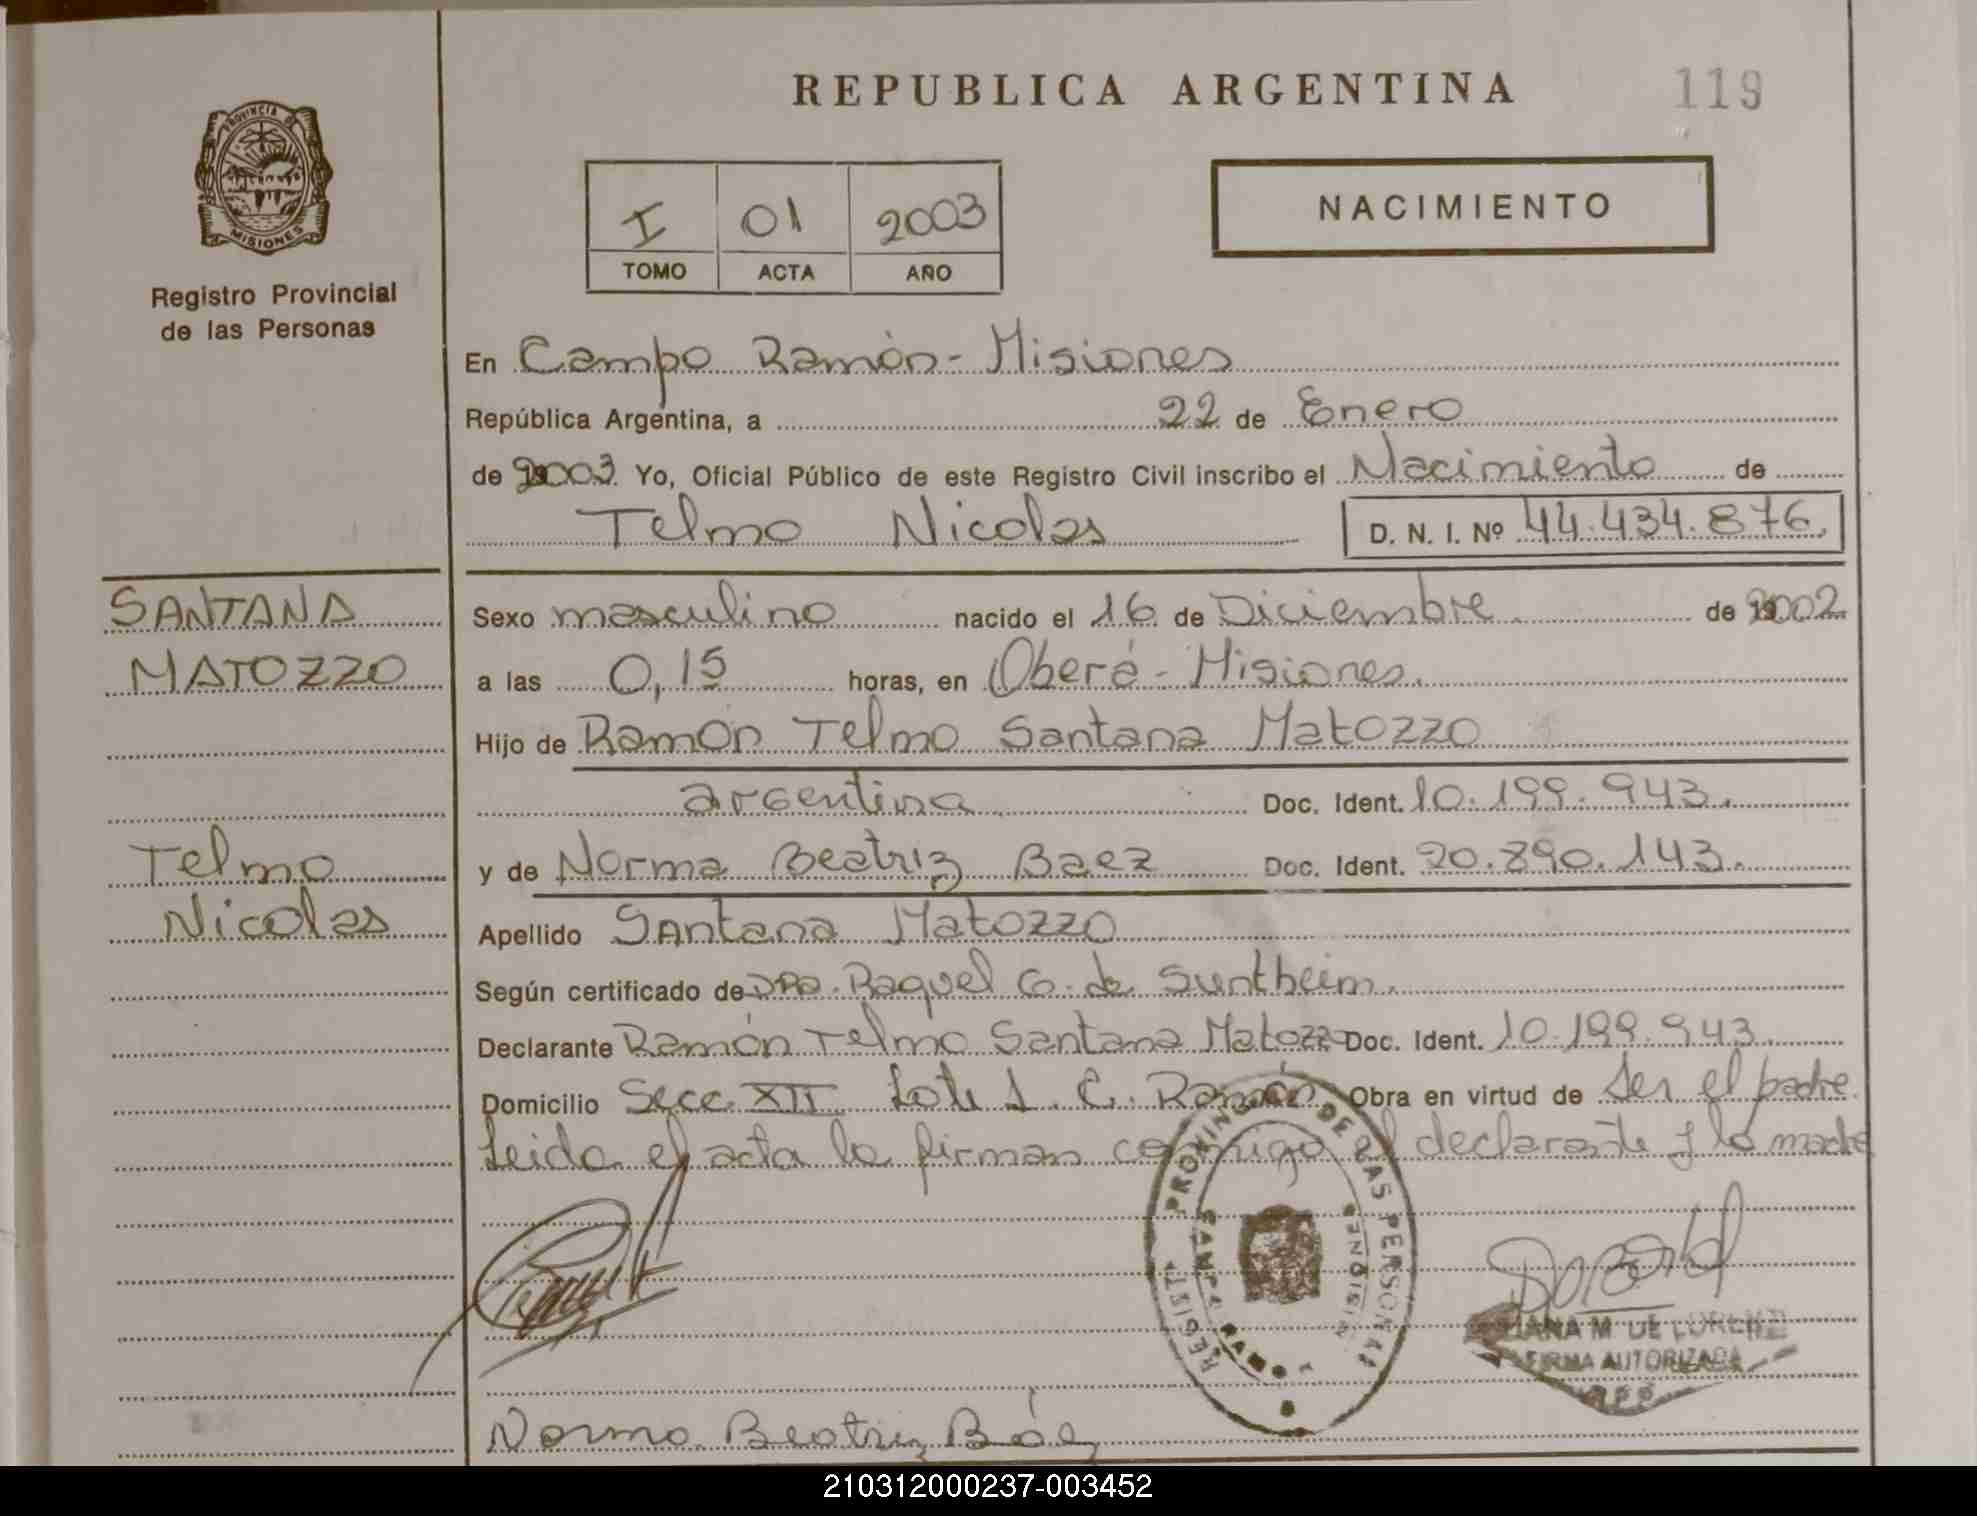 REPUBLICA ARGENTINA
119
PROVINCIA DE
MISIONES
Registro Provincial
de las Personas
I 01 2003
TOMO ACTA AÑO
NACIMIENTO
En Campo Ramón - Misiones
República Argentina, a 22 de Enero
de 2003 Yo, Oficial Público de este Registro Civil inscribo el Nacimiento de
Telmo Nicolas D. N. I. Nº 44.434.876.
SANTANA
MATOZZO
Telmo
Nicolas
Sexo masculino nacido el 16 de Diciembre de 2002
a las 0,15 horas, en Oberá - Misiones.
Hijo de Ramón Telmo Santana Matozzo
argentina Doc. Ident. 10.199.943.
y de Norma Beatriz Baez Doc. Ident. 20.890.143.
Apellido Santana Matozzo
Según certificado de DRA. Raquel G. de Suntheim.
Declarante Ramón Telmo Santana Matozzo Doc. Ident. 10.199.943.
Domicilio Secc. XII Lote 1. C. Ramón Obra en virtud de Ser el padre.
Leida el acta la firman conmigo el declarante y la madre
DE LAS PERSONAS
MISIONES
M. DE LORENZ
FIRMA AUTORIZADA
Norma Beatriz Báez
210312000237-003452